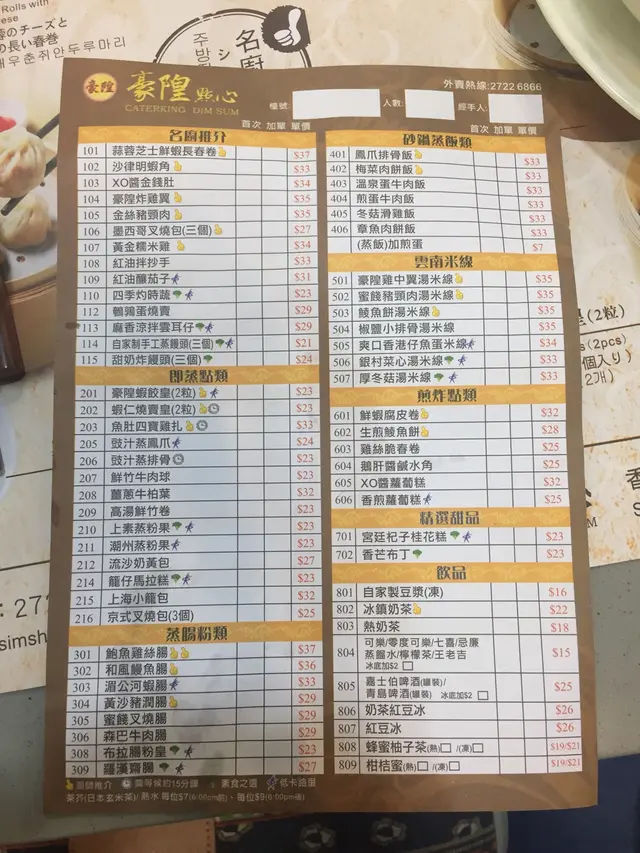 Rolls with
名廚
豪隍 豪隍點心
CATERKING DIM SUM
外賣熱線:2722 6866
檯號: 人數: 經手人:
首次 加單 單價
名廚推介
101 蒜蓉芝士鮮蝦長春卷 $37
102 沙律明蝦角 $33
103 XO醬金錢肚 $34
104 豪隍炸雞翼 $35
105 金絲豬頸肉 $35
106 墨西哥叉燒包(三個) $27
107 黃金糯米雞 $34
108 紅油拌抄手 $33
109 紅油釀茄子 $31
110 四季灼時蔬 $23
112 鵪鶉蛋燒賣 $29
113 麻香涼拌雲耳仔 $29
114 自家制手工蒸饅頭(三個) $21
115 甜奶炸饅頭(三個) $24
即蒸點類
201 豪隍蝦餃皇(2粒) $23
202 蝦仁燒賣皇(2粒) $23
203 魚肚四寶雞扎 $33
205 豉汁蒸鳳爪 $24
206 豉汁蒸排骨 $23
207 鮮竹牛肉球 $23
208 薑蔥牛柏葉 $32
209 高湯鮮竹卷 $23
210 上素蒸粉果 $23
211 潮州蒸粉果 $23
212 流沙奶黃包 $27
214 籠仔馬拉糕 $23
215 上海小籠包 $32
216 京式叉燒包(3個) $25
蒸腸粉類
301 鮑魚雞絲腸 $37
302 和風鰻魚腸 $36
303 湄公河蝦腸 $33
304 黃沙豬潤腸 $29
305 蜜餞叉燒腸 $29
306 森巴牛肉腸 $29
308 布拉腸粉皇 $23
309 羅漢齋腸 $27
廚師推介 需等候約15分鐘 素食之選 低卡路里
茶芥(日本玄米茶)/熱水 每位$7(6:00pm前)、每位$9(6:00pm後)
首次 加單 單價
砂鍋蒸飯類
401 鳳爪排骨飯 $33
402 梅菜肉餅飯 $33
403 溫泉蛋牛肉飯 $33
404 煎蛋牛肉飯 $33
405 冬菇滑雞飯 $33
406 章魚肉餅飯 $33
(蒸飯)加煎蛋 $7
雲南米線
501 豪隍雞中翼湯米線 $35
502 蜜餞豬頸肉湯米線 $35
503 鯪魚餅湯米線 $35
504 椒鹽小排骨湯米線 $35
505 爽口香港仔魚蛋米線 $34
506 銀村菜心湯米線 $33
507 厚冬菇湯米線 $33
煎炸點類
601 鮮蝦腐皮卷 $32
602 生煎鯪魚餅 $28
603 雞絲脆春卷 $25
604 鵝肝醬鹹水角 $25
605 XO醬蘿蔔糕 $32
606 香煎蘿蔔糕 $25
精選甜品
701 宮廷杞子桂花糕 $23
702 香芒布丁 $23
飲品
801 自家製豆漿(凍) $16
802 冰鎮奶茶 $22
803 熱奶茶 $18
804 可樂/零度可樂/七喜/忌廉
蒸餾水/檸檬茶/王老吉 $15
冰底加$2
805 嘉士伯啤酒(罐裝)/
青島啤酒(罐裝) 冰底加$2 $25
806 奶茶紅豆冰 $26
807 紅豆冰 $26
808 蜂蜜柚子茶(熱) /(凍) $19/$21
809 柑桔蜜(熱) /(凍) $19/$21
(2粒)
(2pcs)